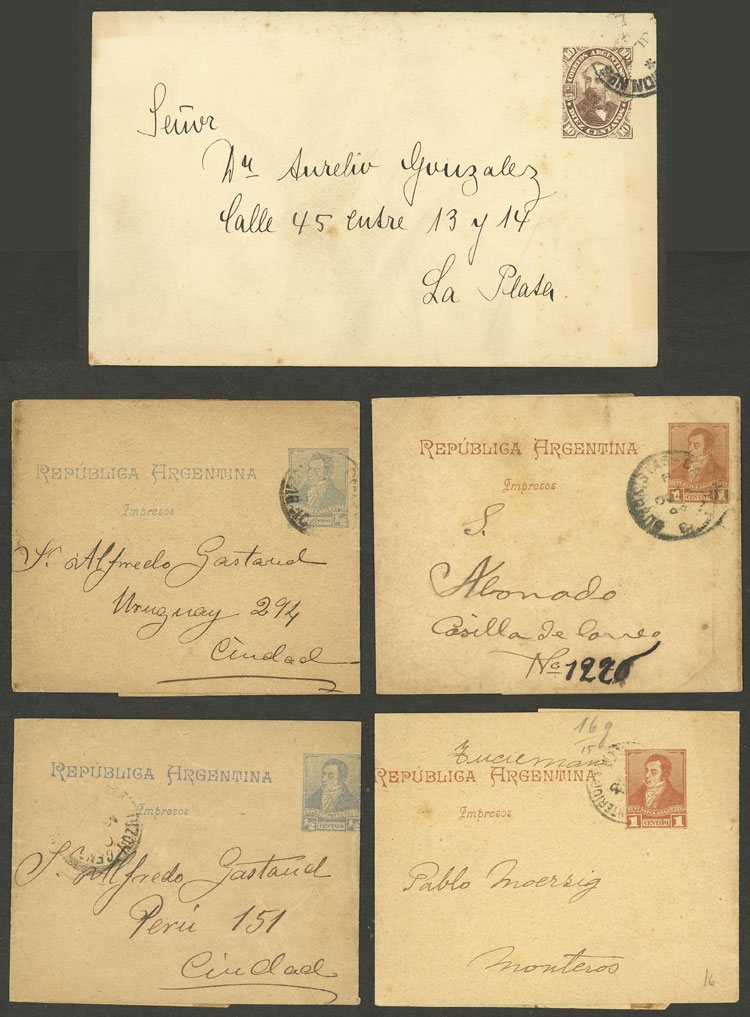 CORREOS ARGENTINOS
DIEZ CENTAVOS
Señor
Dr Aurelio Gonzalez
Calle 45 entre 13 y 14
La Plata
REPÚBLICA ARGENTINA
Impresos
Sr. Alfredo Gastaud
Uruguay 294
Ciudad
REPÚBLICA ARGENTINA
Impresos
1 CENTAVO 1
S.
Abonado
Casilla de Correo
No 1226
REPÚBLICA ARGENTINA
Impresos
1/2 CENTAVO 1/2
Sr. Alfredo Gastaud
Perú 151
Ciudad
16g
15
Tucuman
REPÚBLICA ARGENTINA
Impresos
1 CENTAVO 1
Pablo Moerzig
Monteros
16